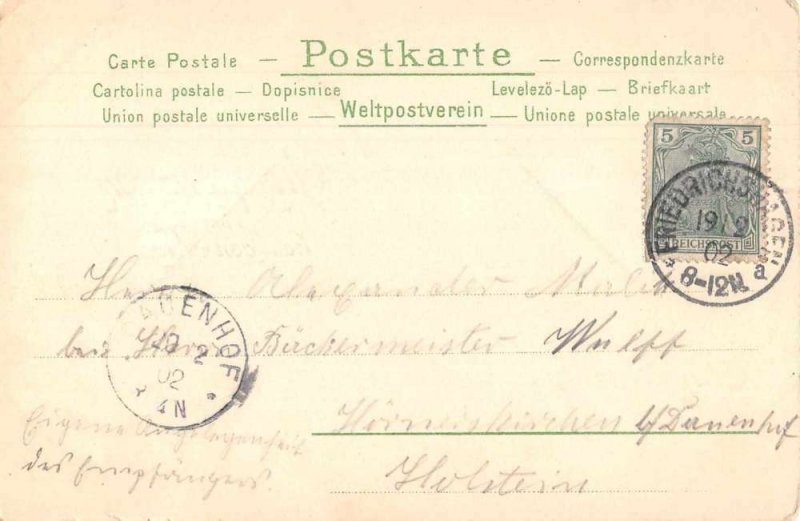 Carte Postale — Postkarte — Correspondenzkarte
Cartolina postale — Dopisnice Levelezö-Lap — Briefkaart
Union postale universelle — Weltpostverein — Unione postale universale
5 5
REICHSPOST
FRIEDRICHSHAGEN
19 2
02
8-12N. a
Herr Alexander
bei Herr Bäckermeister Wulff
Hörnerkirchen b/Dauenhof
Holstein
DAUENHOF
19 2
02
4N
Eigene Angelegenheit
des Empfängers.